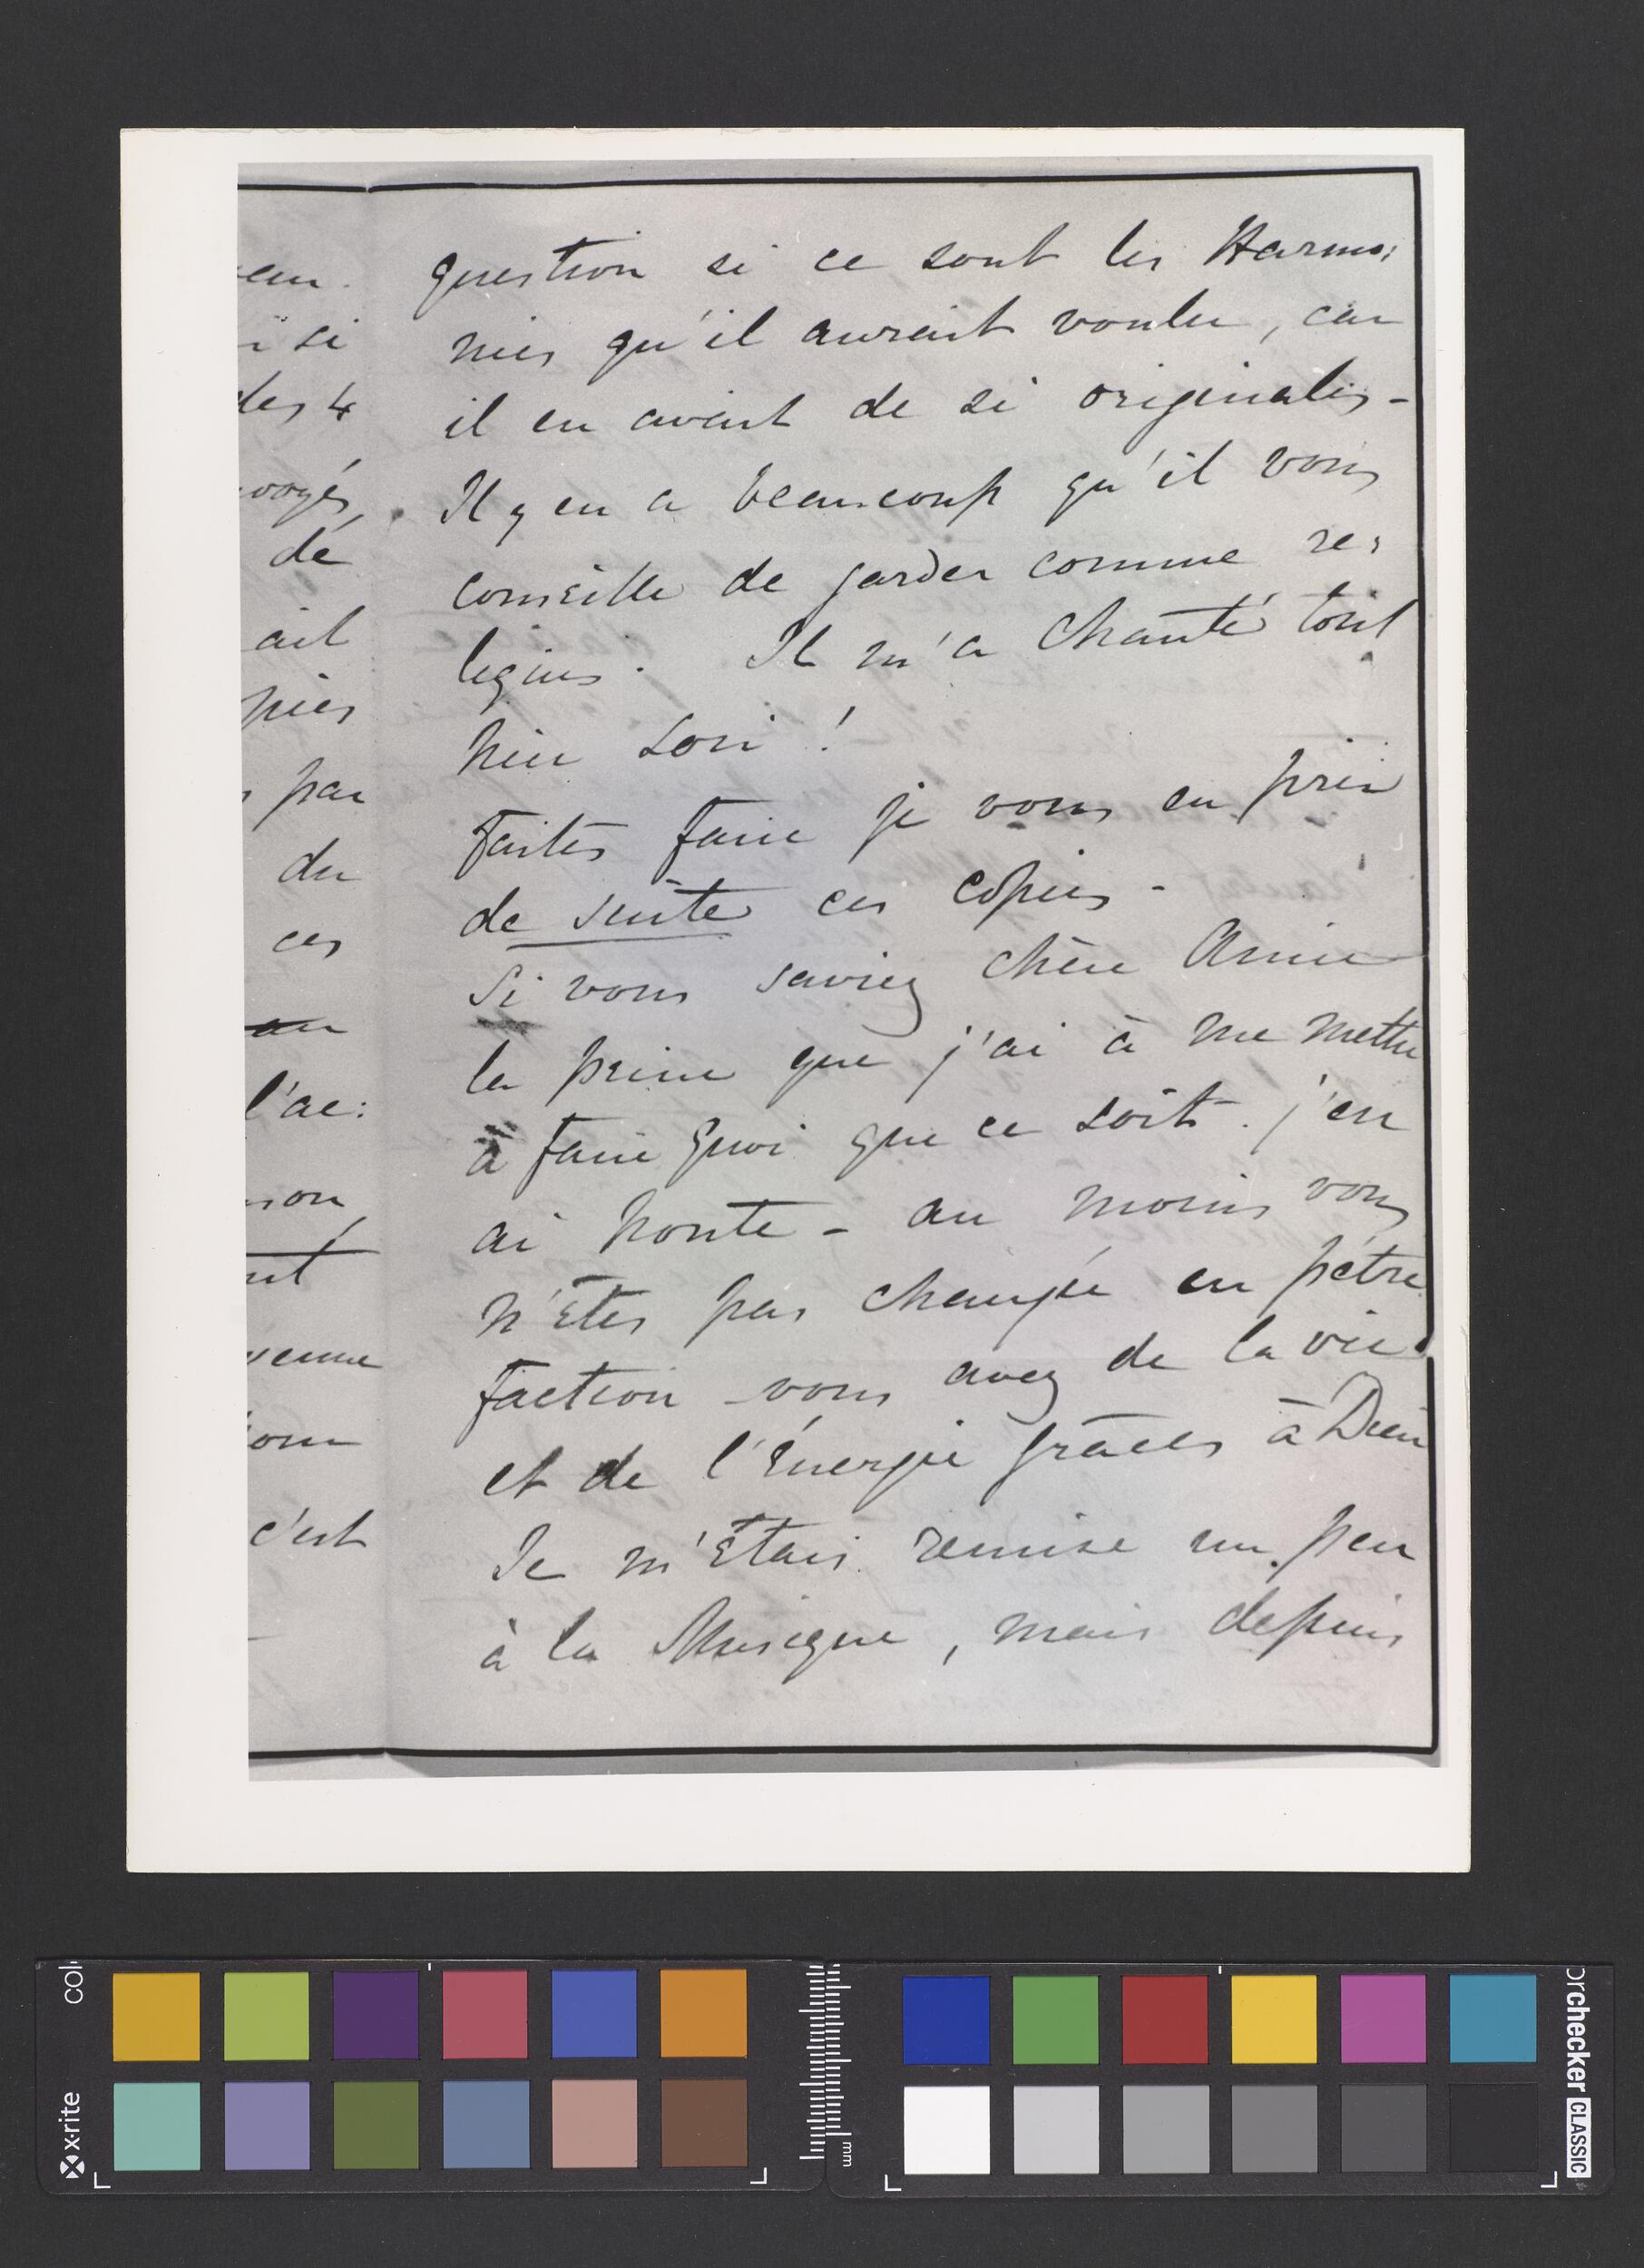 eur.
si
des 4
voyés,
dé
ait
pies
par
du
ces
au
l'ac:
non
nt
venue
pour
c'est
question si ce sont les Harmo:
nies qu'il aurait voulu, car
il en avait de si originales -
Il y en a beaucoup qu'il vous
conseille de garder comme re:
liques. Il m'a chanté tout
hier soir !
Faites faire je vous en prie
de suite ces copies -
Si vous saviez chère Amie
la peine que j'ai à me mettre
à faire quoi que ce soit. j'en
ai honte - au moins vous
n'êtes pas changée en pétré
faction - vous avez de la vie
et de l'énergie grâces à Dieu
Je m'étais remise un peu
à la Musique, mais depuis
col
x·rite
mm
orchecker CLASSIC